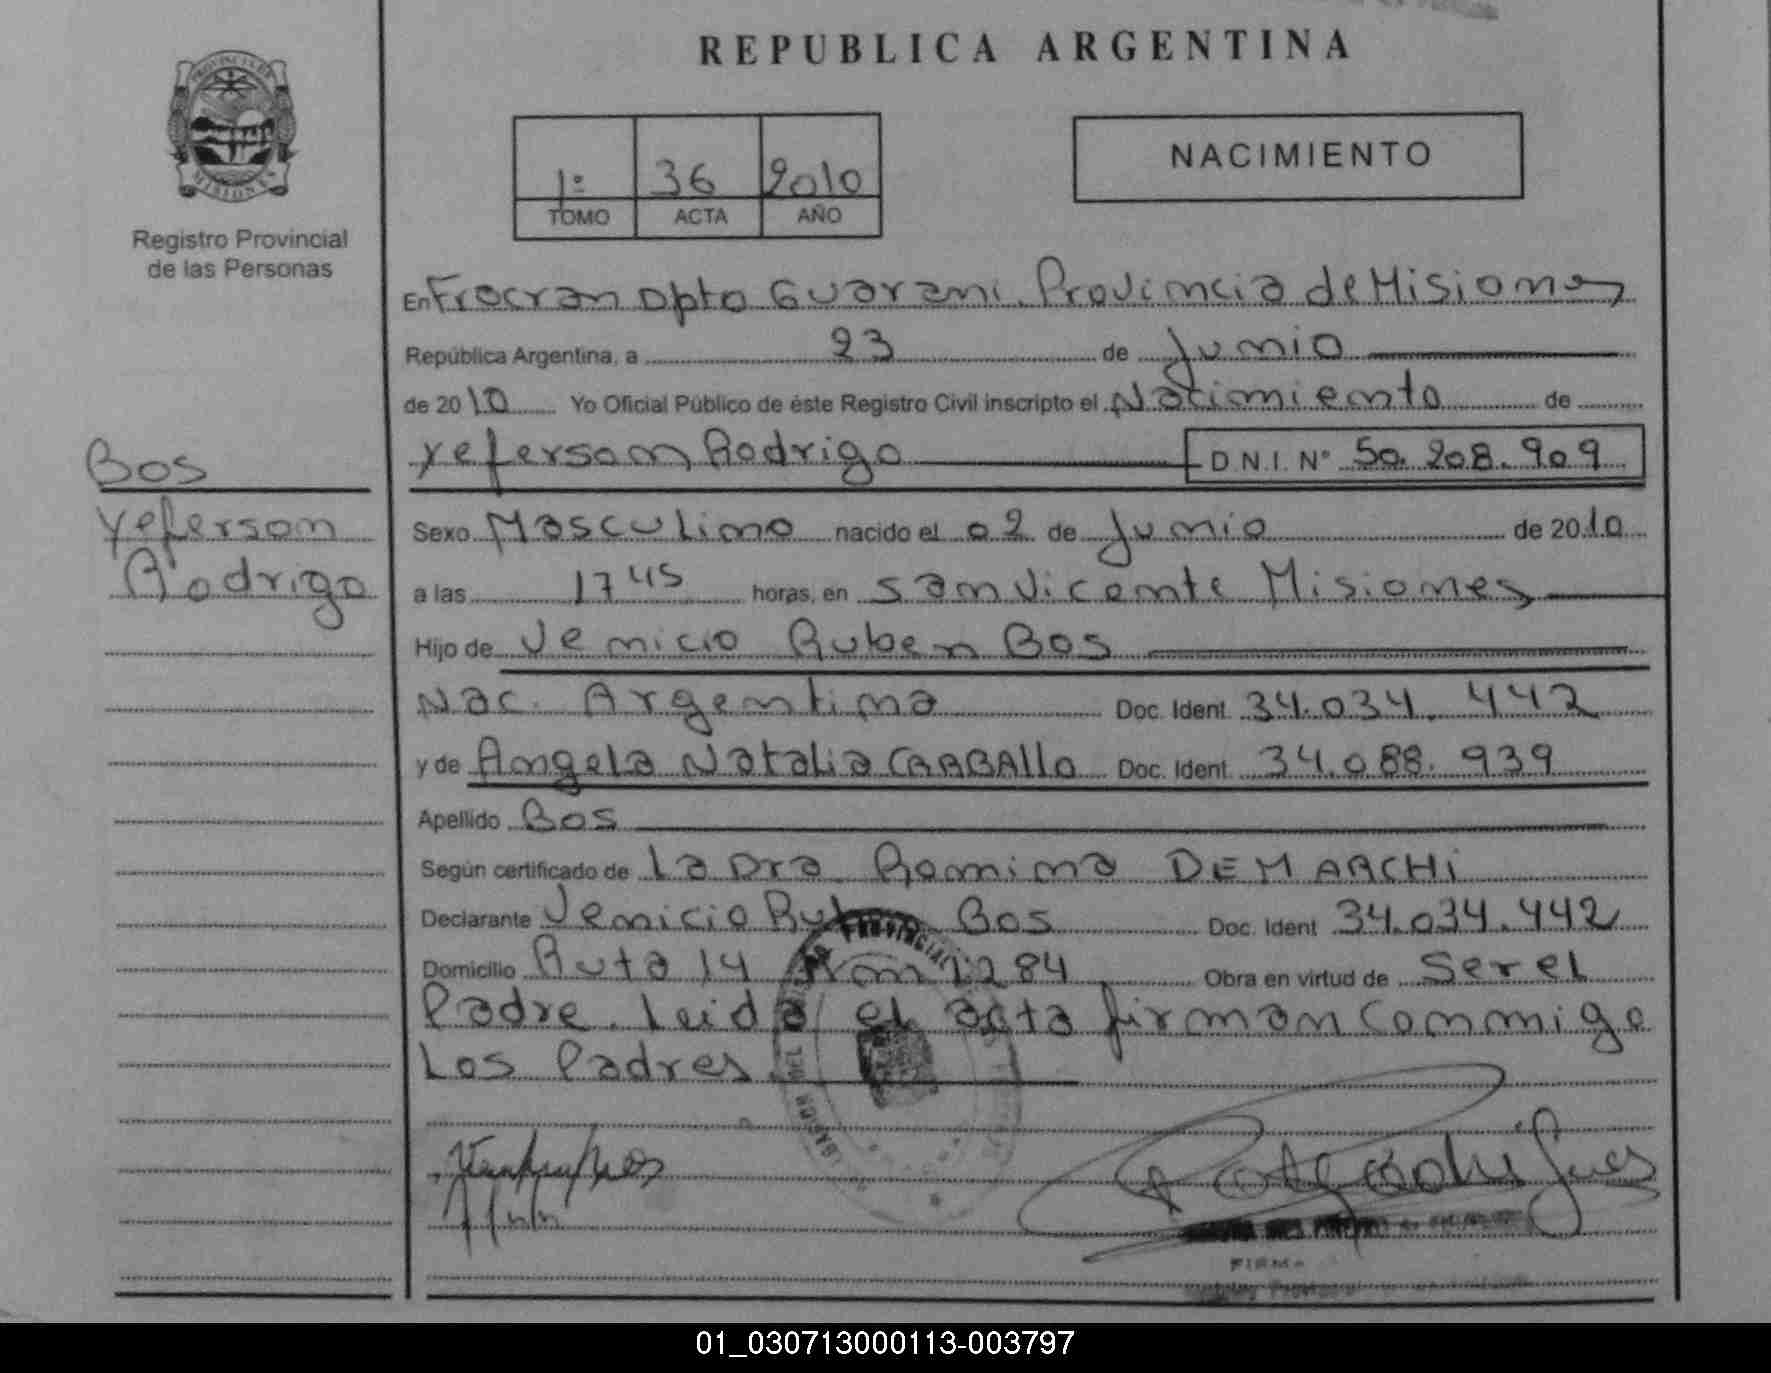 REPUBLICA ARGENTINA
PROVINCIA DE
MISIONES
Registro Provincial
de las Personas
1º 36 2010
TOMO ACTA AÑO
NACIMIENTO
En Fracran Dpto Guarani. Provincia de Misiones
República Argentina, a 23 de Junio
de 2010 Yo Oficial Público de éste Registro Civil inscripto el Nacimiento de
Yeferson Rodrigo D.N.I. Nº 50.208.909
Bos
Yeferson
Rodrigo
Sexo Masculino nacido el 02 de Junio de 2010
a las 17 45 horas, en San Vicente Misiones
Hijo de Venicio Ruben Bos
Nac. Argentina Doc. Ident. 34.034.442
y de Angela Natalia CARBALLO Doc. Ident. 34.088.939
Apellido Bos
Según certificado de La Dra. Romina DEMARCHI
Declarante Venicio Ruben Bos Doc. Ident 34.034.442
Domicilio Ruta 14 Km 1284 Obra en virtud de Ser el
Padre. Leida el acta firman conmigo
Los Padres
FIRMA
01_030713000113-003797